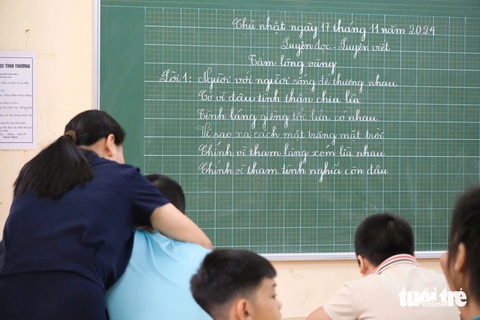 Chủ nhật ngày 17 tháng 11 năm 2024
Luyện đọc - Luyện viết
Tấm lòng vàng
Lời 1: Người với người sống để thương nhau
Cớ vì đâu tình thắm chia lìa
Tình láng giềng tối lửa có nhau
Vì sao xa cách mặt trăng mặt trời
Chính vì tham làng xóm lìa nhau
Chính vì tham tình nghĩa còn đâu
tuổi trẻ
online